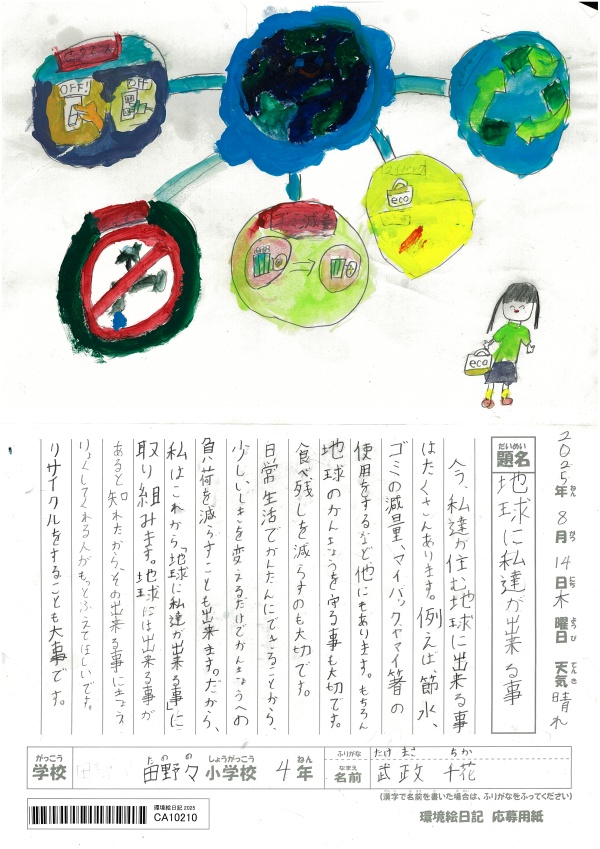 OFF!
OFF
eco
ゴミの減量
eco
2025年 8月 14日 木曜日 天気 晴れ
ねん がつ にち ようび てんき
だいめい
題名 地球に私達が出来る事
今、私達が住む地球に出来る事
はたくさんあります。例えば、節水、
ゴミの減量、マイバックやマイ箸の
使用をするなど他にもあります。もちろん
地球のかんきょうを守る事も大切です。
食べ残しを減らすのも大切です。
日常生活でかんたんにできることから、
少しいしきを変えるだけでかんきょうへの
負荷を減らすことも出来ます。だから、
私はこれから「地球に私達が出来る事」に
取り組みます。地球には出来る事が
あると知れたから、その出来る事にきょう
りょくしてくれる人がもっとふえてほしいです。
リサイクルをすることも大事です。
がっこう たのの しょうがっこう ねん
学校 田野々小学校 4年
ふりがな たけまさ ちか
なまえ
名前 武政 千花
(漢字で名前を書いた場合は、ふりがなをふってください)
環境絵日記 2025
CA10210
環境絵日記 応募用紙